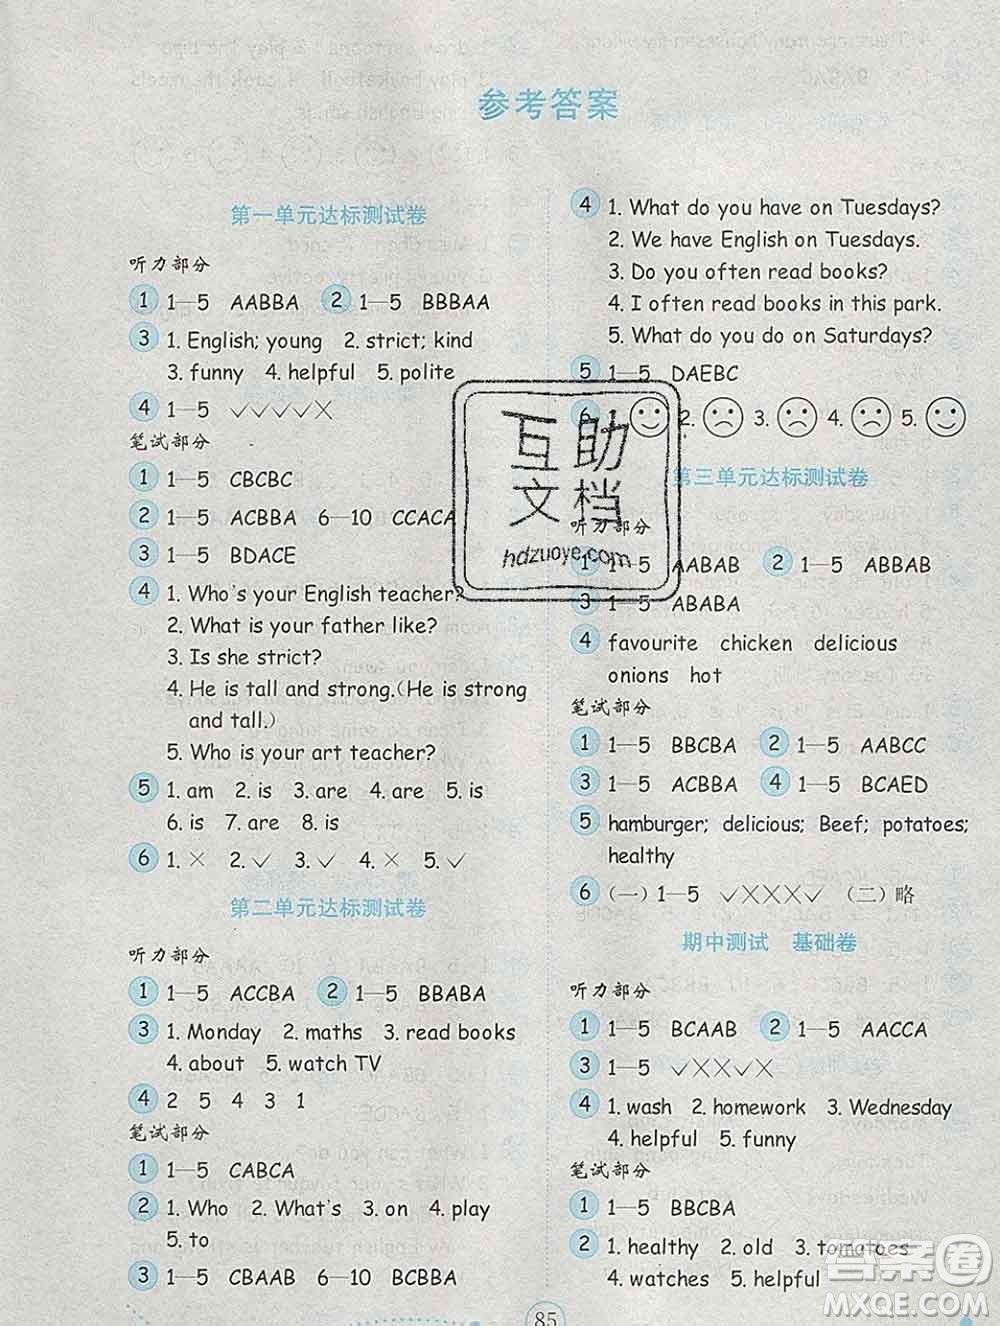 参考答案
第一单元达标测试卷
听力部分
1 1—5 AABBA 2 1—5 BBBAA
3 1. English; young 2. strict; kind
3. funny 4. helpful 5. polite
4 1—5 ✓✓✓✓✗
笔试部分
1 1—5 CBCBC
2 1—5 ACBBA 6—10 CCACA
3 1—5 BDACE
4 1. Who's your English teacher?
2. What is your father like?
3. Is she strict?
4. He is tall and strong.(He is strong
and tall.)
5. Who is your art teacher?
5 1. am 2. is 3. are 4. is 5. is
6. is 7. are 8. is
6 1. ✗ 2. ✓ 3. ✓ 4. ✗ 5. ✓
第二单元达标测试卷
听力部分
1 1—5 ACCBA 2 1—5 BBABA
3 1. Monday 2. maths 3. read books
4. about 5. watch TV
4 2 5 4 3 1
笔试部分
1 1—5 CABCA
2 1. Who 2. What's 3. on 4. play
5. to
3 1—5 CBAAB 6—10 BCBBA
4 1. What do you have on Tuesdays?
2. We have English on Tuesdays.
3. Do you often read books?
4. I often read books in this park.
5. What do you do on Saturdays?
5 1—5 DAEBC
6 1. 2. 3. 4. 5.
第三单元达标测试卷
听力部分
1 1—5 ABBAB 2 1—5 ABBAB
3 1—5 ABABA
4 favourite chicken delicious
onions hot
笔试部分
1 1—5 BBCBA 2 1—5 AABCC
3 1—5 ACBBA 4 1—5 BCAED
5 hamburger; delicious; Beef; potatoes;
healthy
6 (一) 1—5 ✓✗✗✗✓ (二) 略
期中测试 基础卷
听力部分
1 1—5 BCAAB 2 1—5 AACCA
3 1—5 ✓✗✗✓✗
4 1. wash 2. homework 3. Wednesday
4. helpful 5. funny
笔试部分
1 1—5 BBCBA
2 1. healthy 2. old 3. tomatoes
4. watches 5. helpful
85
互助
文档
hdzuoye.com
答案圈
MXQE.COM